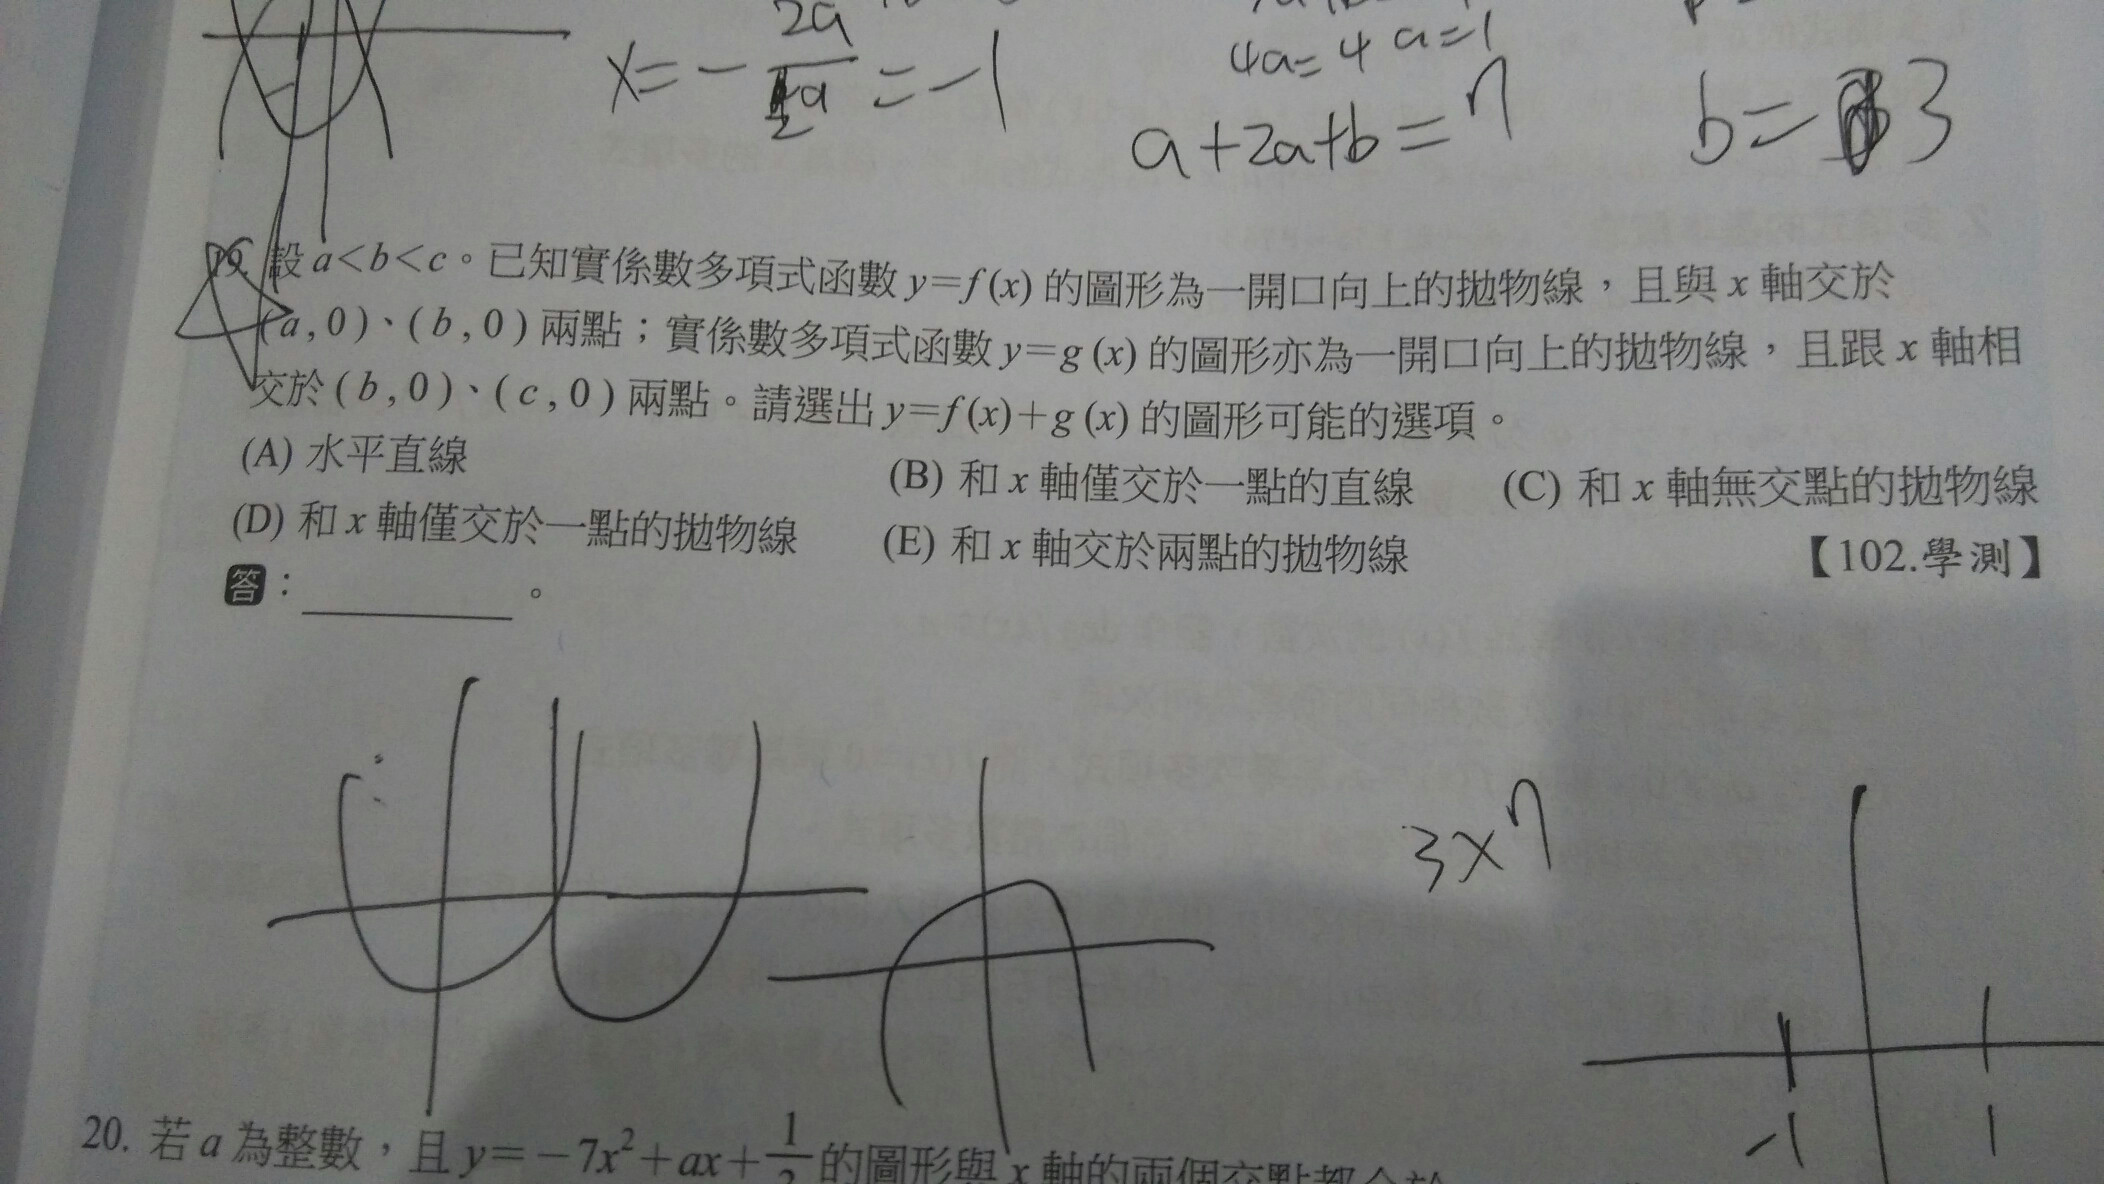 2a
x=- ─ =-1
2a
4a=4 a=1
a+2a+b=7
b= 3
19. 設 a<b<c。已知實係數多項式函數 y=f(x) 的圖形為一開口向上的拋物線，且與 x 軸交於
(a,0)、(b,0) 兩點；實係數多項式函數 y=g(x) 的圖形亦為一開口向上的拋物線，且跟 x 軸相
交於 (b,0)、(c,0) 兩點。請選出 y=f(x)+g(x) 的圖形可能的選項。
(A) 水平直線 (B) 和 x 軸僅交於一點的直線 (C) 和 x 軸無交點的拋物線
(D) 和 x 軸僅交於一點的拋物線 (E) 和 x 軸交於兩點的拋物線 【102.學測】
答：＿＿＿＿。
3x7
-1 1
20. 若 a 為整數，且 y=-7x²+ax+1/ 的圖形與 x 軸的兩個交點都介於